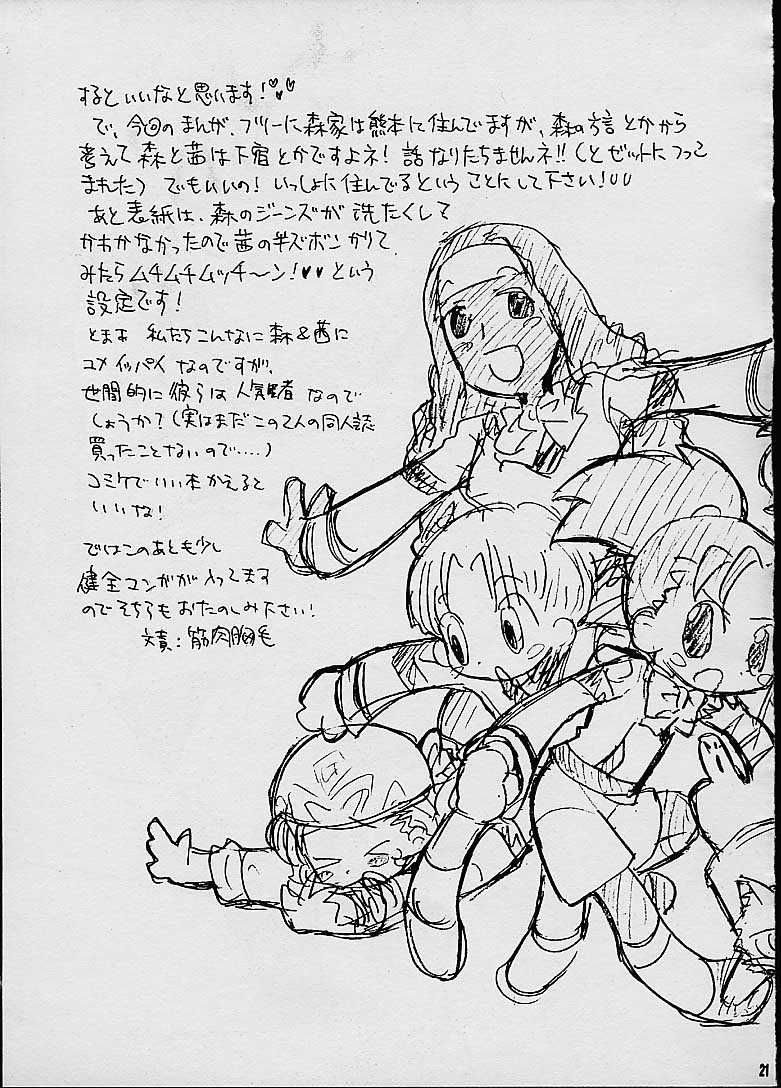 するといいなと思います！♥♥
で、今回のまんが、フツーに森家は熊本に住んでますが、森の方言とかから
考えて森と茜は下宿とかですよネ！話なりたちませんネ!!(とゼットにつっこ
まれた) でもいいの！いっしょに住んでるということにして下さい！
あと表紙は、森のジーンズが洗たくして
かわかなかったので茜の半ズボンかりて
みたらムチムチムッチ〜ン！♥♥という
設定です！
とまぁ 私たちこんなに森&茜に
ユメイッパイなのですが、
世間的に彼らは人気者なので
しょうか？(実はまだこの2人の同人誌
買ったことないので……)
コミケでいい本かえると
いいな！
ではこのあとも少し
健全マンガが入ってます
のでそちらもおたのしみ下さい！
文責：筋肉胸毛
は
21